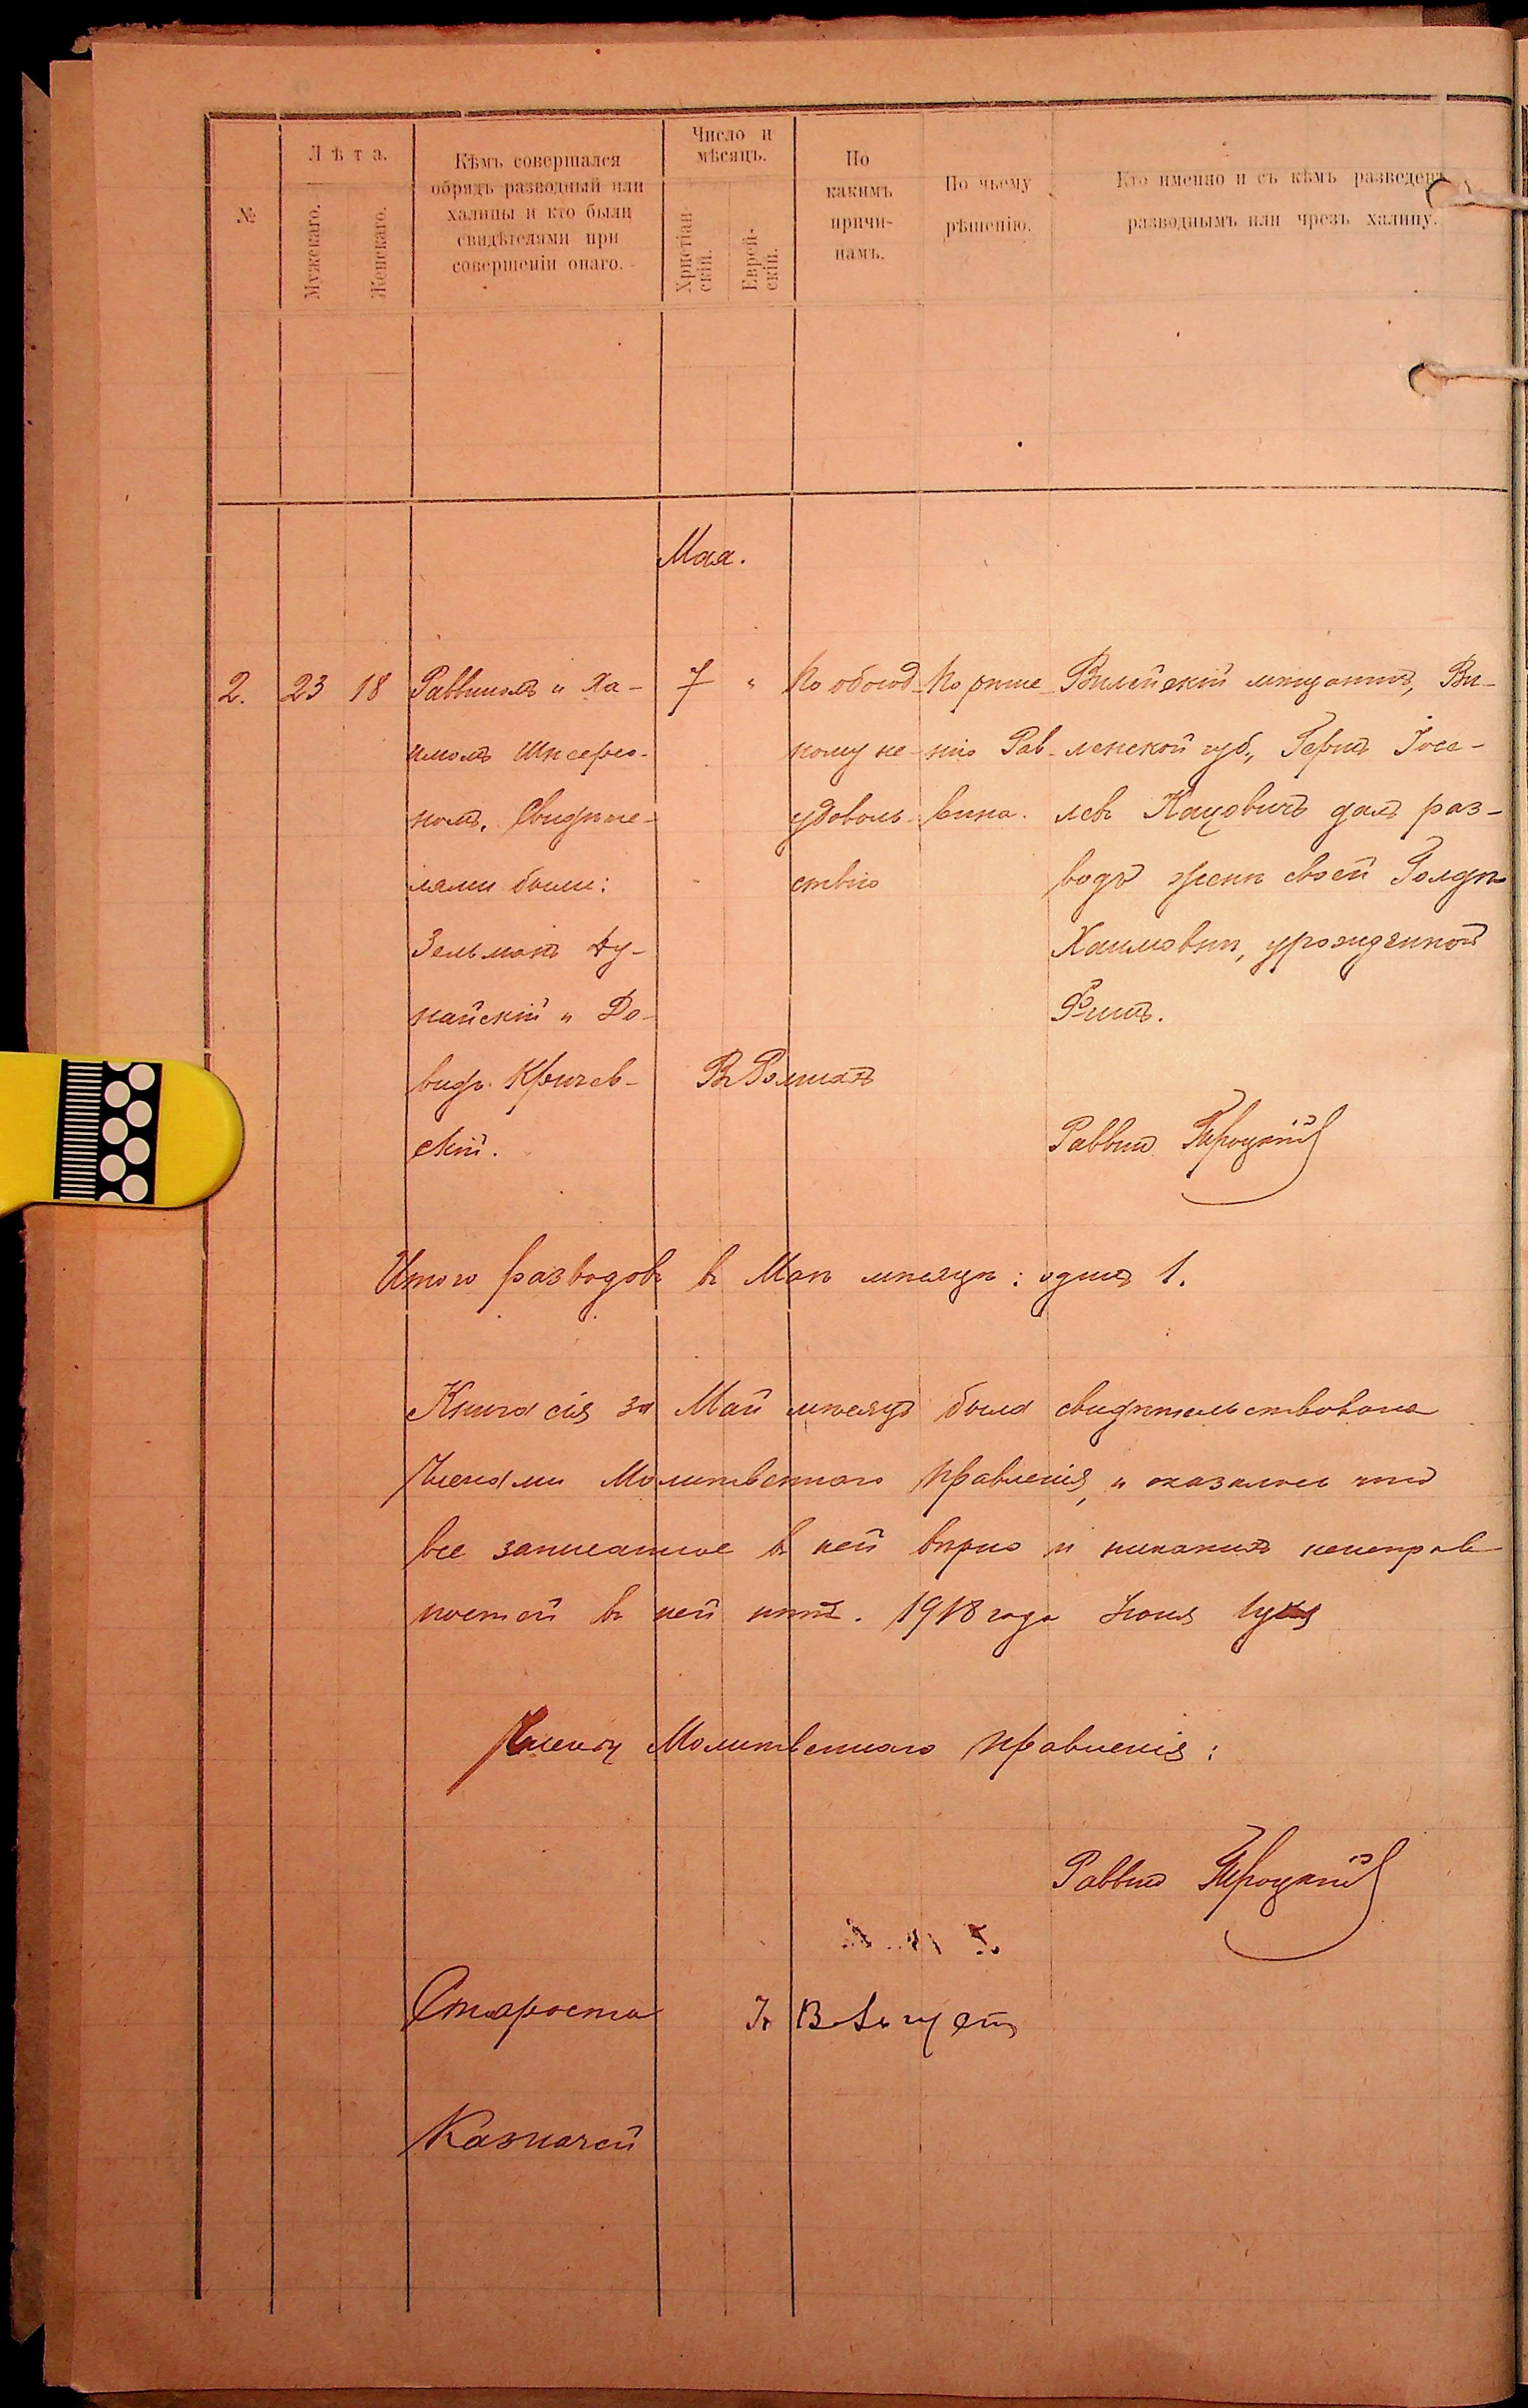 №
Лѣта.
Мужскаго.
Женскаго.
Кѣмъ совершался
обрядъ разводный или
халицы и кто были
свидѣтелями при
совершеніи онаго.
Число и
мѣсяцъ.
Христіан-
скій.
Еврей-
скій.
По
какимъ
причи-
намъ.
По чьему
рѣшенію.
Кто именно и съ кѣмъ разведенъ
разводнымъ или чрезъ халицу.
Мая.
2.
23
18
Раввиномъ и Ха-
имомъ
Свидѣте-
лями были:
Зельманъ Ду-
найскій и До-
видъ Кричев-
скій.
7
"
Въ Ромнахъ
По обоюд-
ному не-
удоволь-
ствію
По рѣше-
нію Рав-
вина.
Вилейскій мѣщанинъ, Ви-
ленской губ., Гершъ Іосе-
левъ Кацовичъ далъ раз-
водъ женѣ своей Голдѣ
Хаимовнѣ, урожденной
Раввинъ Троцкій
Итого разводовъ въ Маѣ мѣсяцѣ: одинъ 1.
Книга сія за Май мѣсяцъ была свидѣтельствована
Членами Молитвеннаго Правленія, и оказалось что
все записанное въ ней вѣрно и никакихъ неисправ
ностей въ ней нѣтъ. 1918 года Іюня 1 дня
Члены Молитвеннаго Правленія:
Раввинъ Троцкій
Староста
Казначей